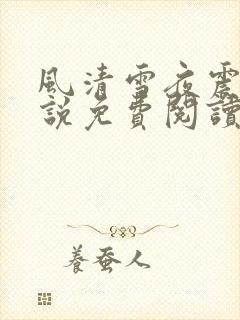 風清雪夜震
說免費閱讀
養蚕人